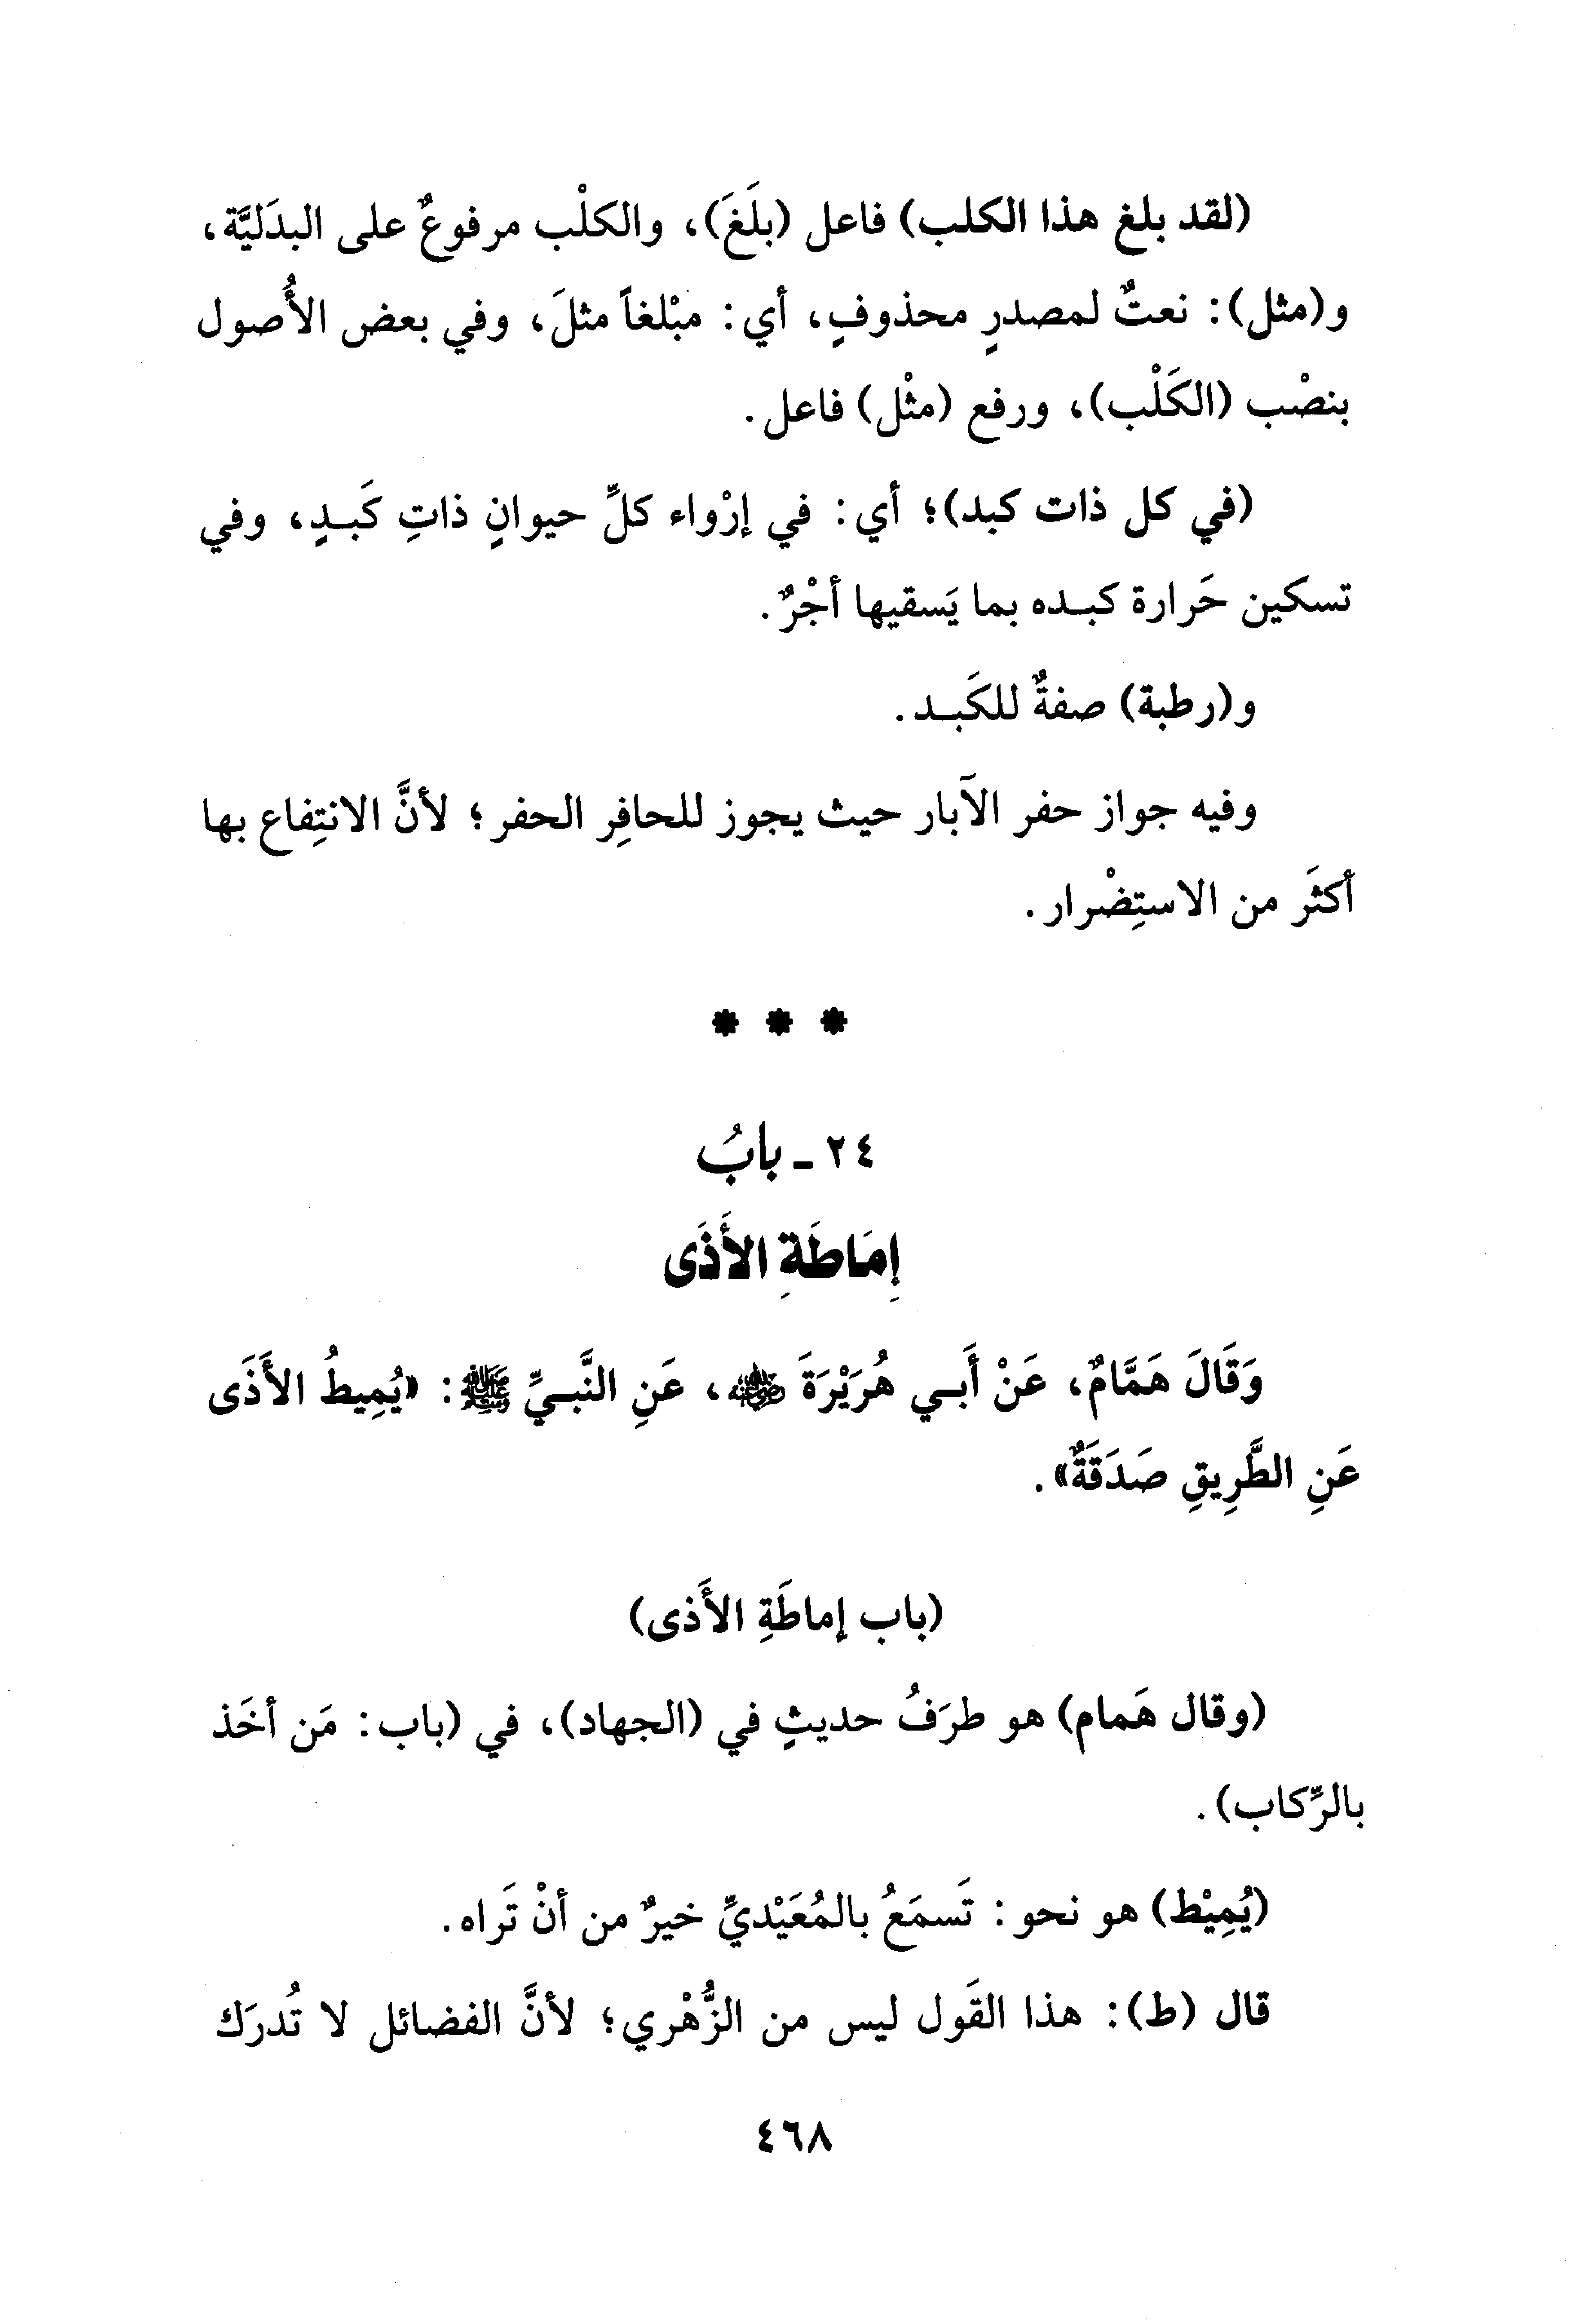 (لقد بلغ هذا الكلب) فاعل (بلَغَ)، والكلْب مرفوعٌ على البدَليَّة،
و(مثل): نعتٌ لمصدرٍ محذوفٍ، أي: مبْلغاً مثلَ، وفي بعض الأُصول
بنصْب (الكَلْب)، ورفع (مثْل) فاعل.
(في كل ذات كبد)؛ أي: في إرْواء كلِّ حيوانٍ ذاتِ كَبدٍ، وفي
تسكين حَرارة كبده بما يَسقيها أجْرٌ.
و(رطبة) صفةٌ للكَبد.
وفيه جواز حفر الآبار حيث يجوز للحافِر الحفر؛ لأنَّ الانتِفاع بها
أكثَر من الاستِضْرار.
* * *
٢٤ - بابُ
إِمَاطَةِ الأَذَى
وَقَالَ هَمَّامٌ، عَنْ أَبي هُرَيْرَةَ رضي الله عنه، عَنِ النَّبيِّ ﷺ: «يُمِيطُ الأَذَى
عَنِ الطَّرِيقِ صَدَقَةٌ».
(باب إماطَةِ الأَذى)
(وقال هَمام) هو طرَفُ حديثٍ في (الجهاد)، في (باب: مَن أخَذ
بالرِّكاب).
(يُمِيْط) هو نحو: تَسمَعُ بالمُعَيْديِّ خيرٌ من أنْ تَراه.
قال (ط): هذا القَول ليس من الزُّهْري؛ لأنَّ الفضائل لا تُدرَك
٤٦٨